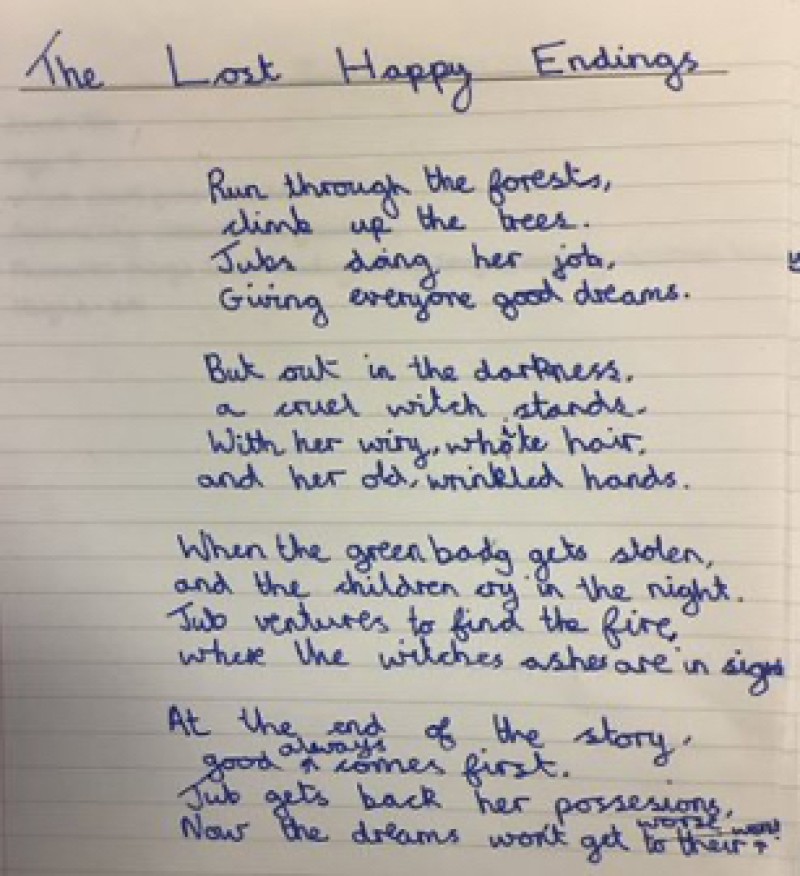 The Lost Happy Endings
Run through the forests,
climb up the trees.
Jubs doing her job,
Giving everyone good dreams.
But out in the darkness,
a cruel witch stands.
With her wiry, white hair,
and her old, wrinkled hands.
When the green badg gets stolen,
and the children cry in the night.
Jub ventures to find the fire,
where the witches ashes are in
At the end of the story,
good always comes first.
Jub gets back her possesions,
Now the dreams won't get worse